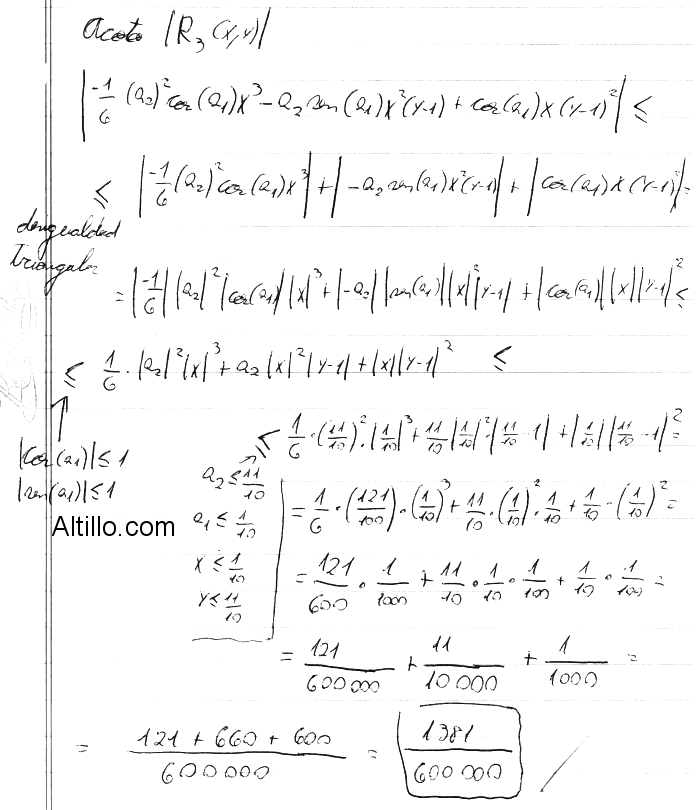 Acoto |R₃(x,y)|
|-1/6 (a₂)² cos(a₁)x³ - a₂ sen(a₁)x²(y-1) + cos(a₁)x(y-1)²| ≤
≤ |-1/6 (a₂)² cos(a₁)x³| + |-a₂ sen(a₁)x²(y-1)| + |cos(a₁)x(y-1)²| =
desigualdad
triangular
= |-1/6| |a₂|² |cos(a₁)| |x|³ + |-a₂| |sen(a₁)| |x|² |y-1| + |cos(a₁)| |x| |y-1|² ≤
≤ 1/6 · |a₂|² |x|³ + a₂ |x|² |y-1| + |x| |y-1|² ≤
|cos(a₁)| ≤ 1
|sen(a₁)| ≤ 1
Altillo.com
a₂ ≤ 11/10
a₁ ≤ 1/10
x ≤ 1/10
y ≤ 11/10
≤ 1/6 · (11/10)² · |1/10|³ + 11/10 |1/10|² · |11/10 - 1| + |1/10| |11/10 - 1|² =
= 1/6 · (121/100) · (1/10)³ + 11/10 · (1/10)² · 1/10 + 1/10 · (1/10)² =
= 121/600 · 1/1000 + 11/10 · 1/10 · 1/100 + 1/10 · 1/100 =
= 121/600 000 + 11/10 000 + 1/1000 =
= 121 + 660 + 600/600 000 = 1381/600 000